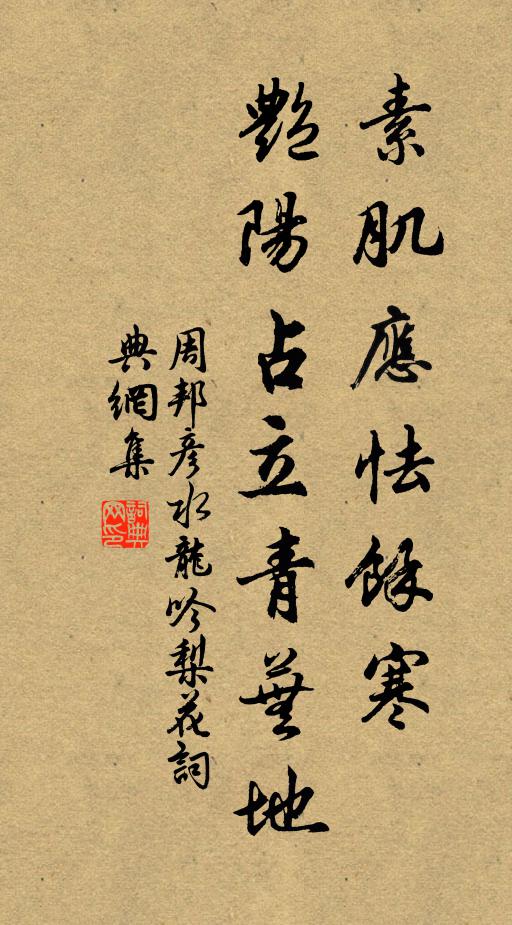 素肌應怯餘寒
艷陽占立青蕪地
周邦彥水龍吟梨花詞
典網集
詞典網印